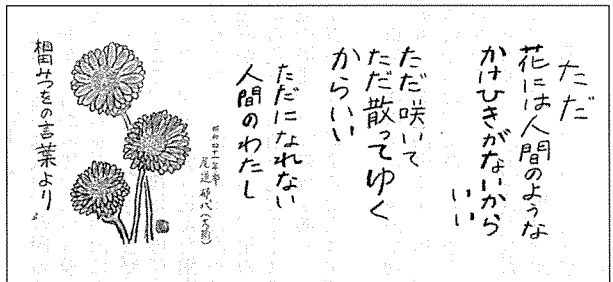 ただ
花には人間のような
かけひきがないから
いい
ただ咲いて
ただ散ってゆく
からいい
ただになれない
人間のわたし
相田みつをの言葉より